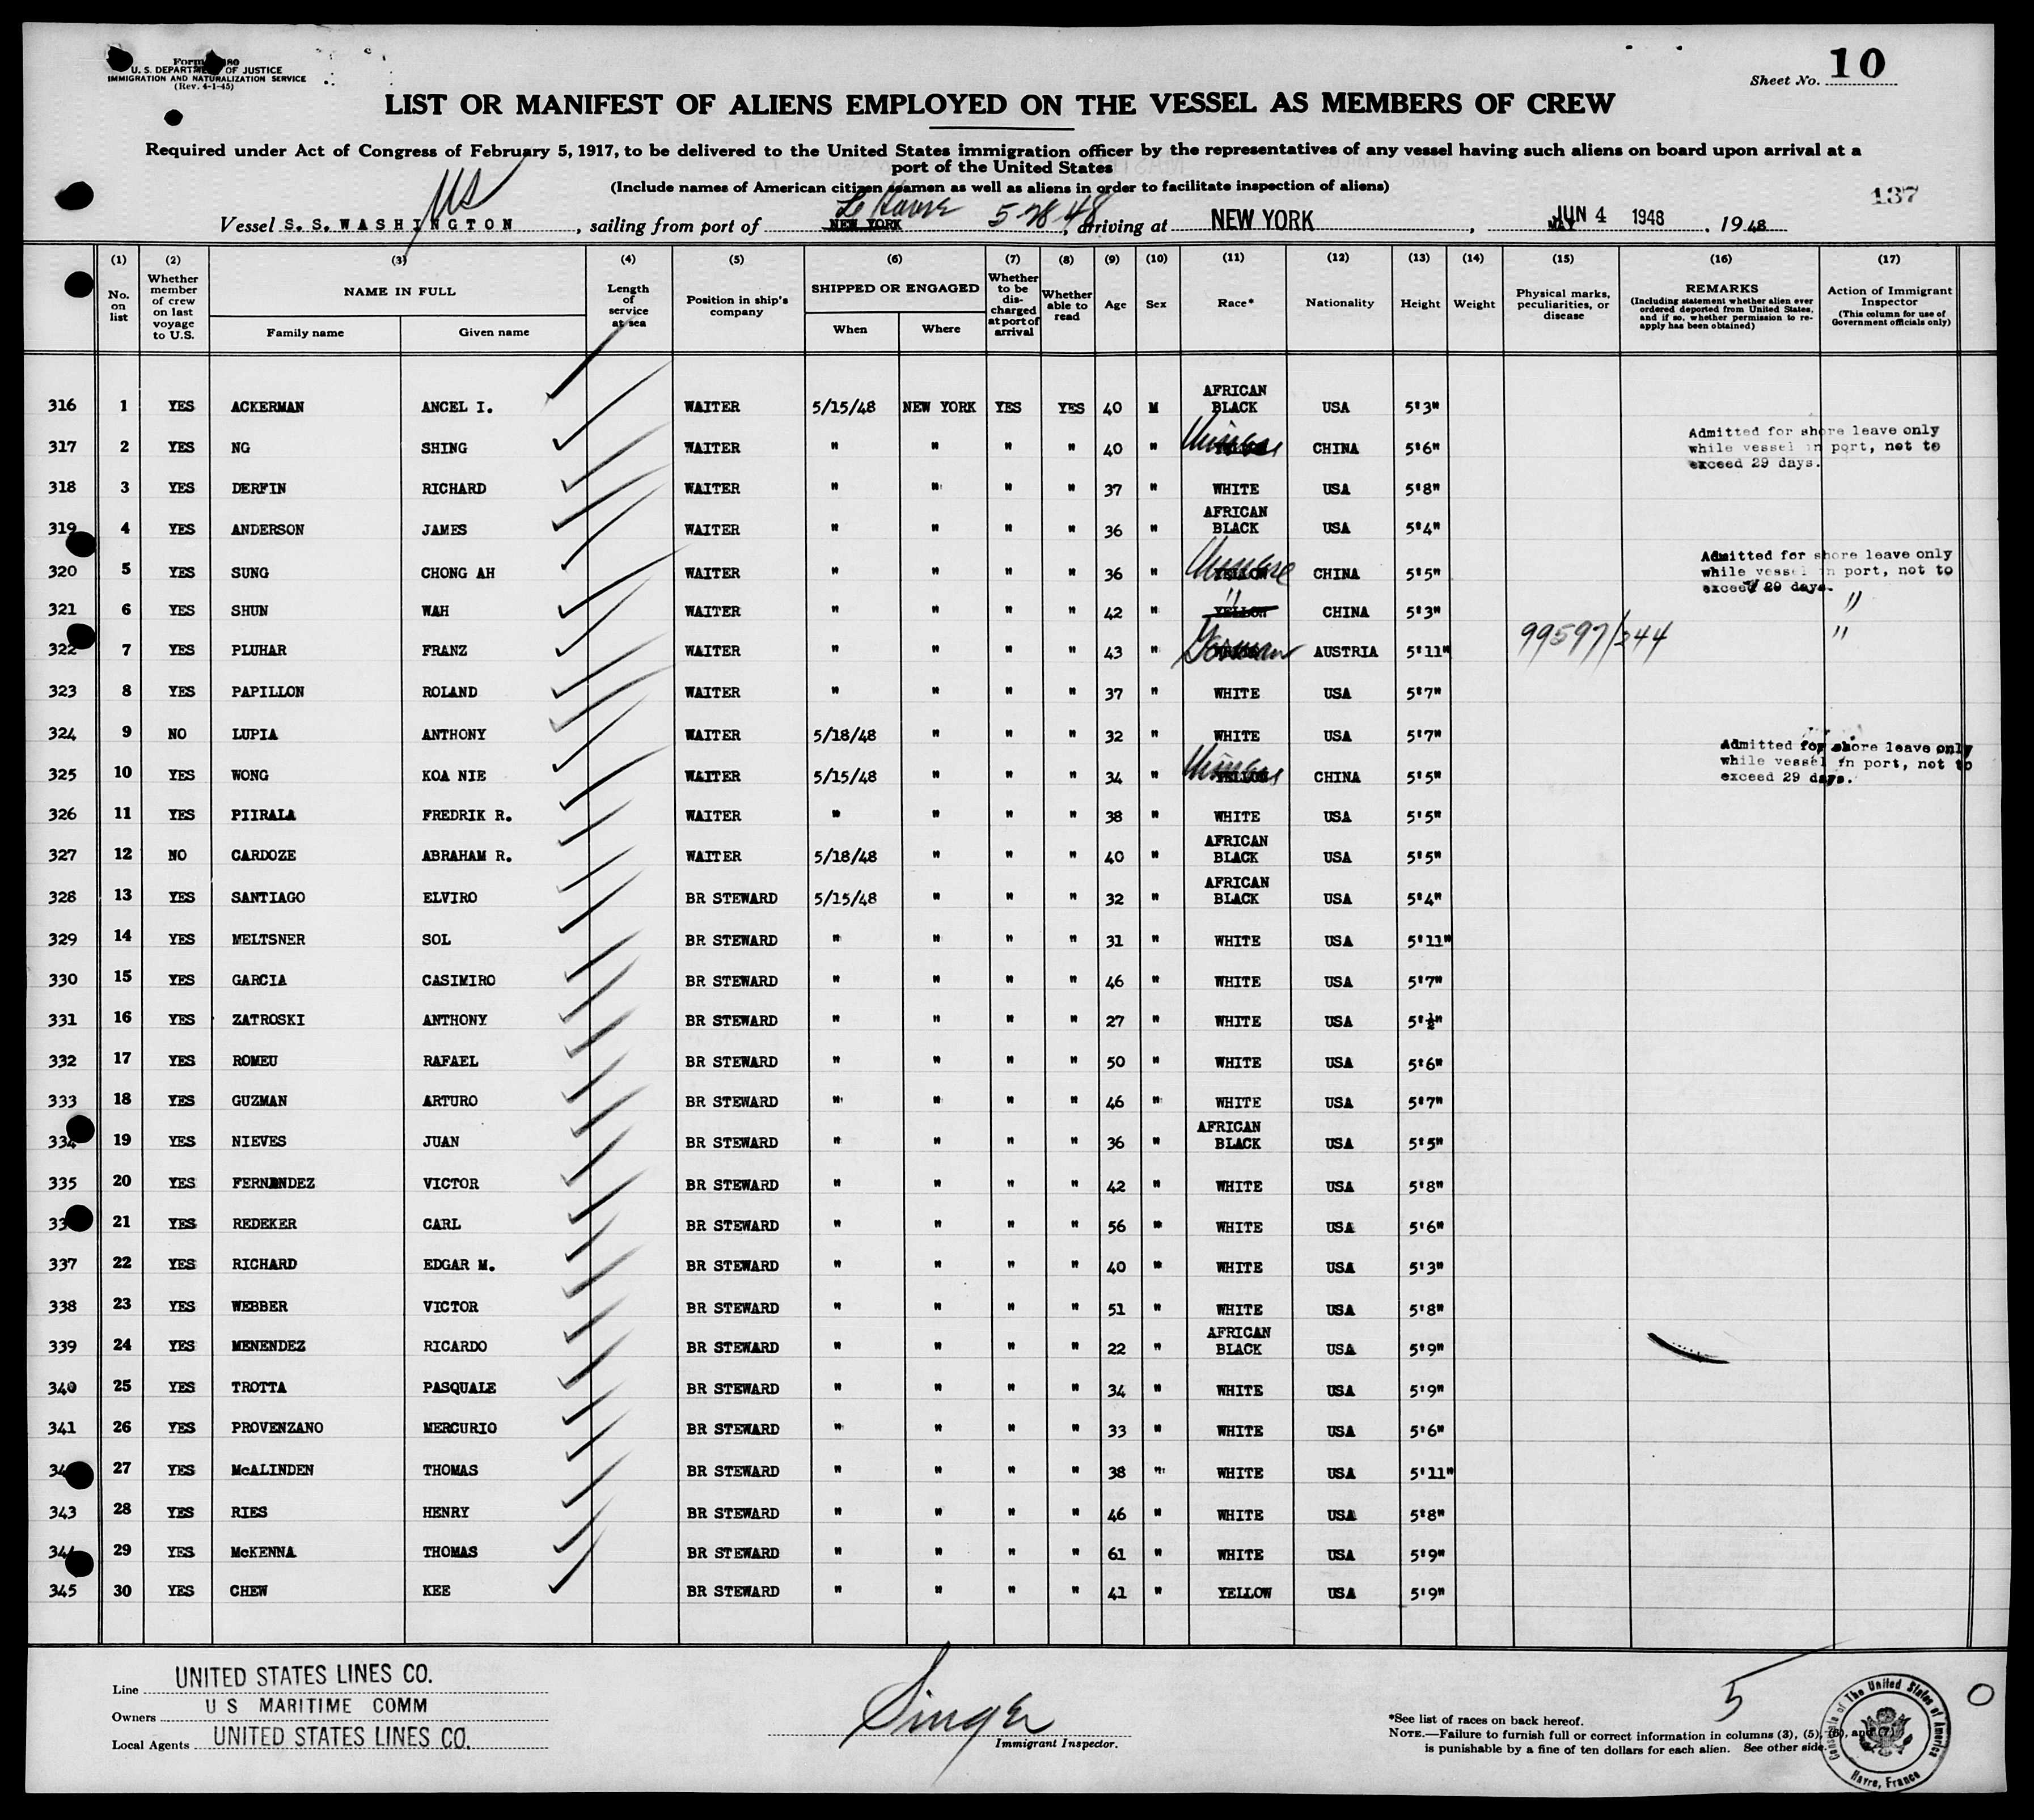 Form 480
U. S. DEPARTMENT OF JUSTICE
IMMIGRATION AND NATURALIZATION SERVICE
(Rev. 4-1-45)
Sheet No. 10
LIST OR MANIFEST OF ALIENS EMPLOYED ON THE VESSEL AS MEMBERS OF CREW
Required under Act of Congress of February 5, 1917, to be delivered to the United States immigration officer by the representatives of any vessel having such aliens on board upon arrival at a
port of the United States
(Include names of American citizen seamen as well as aliens in order to facilitate inspection of aliens)
137
US
Vessel S. S. WASHINGTON, sailing from port of NEW YORK Le Havre 5-28-48, arriving at NEW YORK, MAY JUN 4 1948, 1948
(1) No. on list
(2) Whether member of crew on last voyage to U.S.
(3) NAME IN FULL Family name Given name
(4) Length of service at sea
(5) Position in ship's company
(6) SHIPPED OR ENGAGED When Where
(7) Whether to be discharged at port of arrival
(8) Whether able to read
(9) Age
(10) Sex
(11) Race*
(12) Nationality
(13) Height
(14) Weight
(15) Physical marks, peculiarities, or disease
(16) REMARKS (Including statement whether alien ever ordered deported from United States, and if so, whether permission to re-apply has been obtained)
(17) Action of Immigrant Inspector (This column for use of Government officials only)
316 1 YES ACKERMAN ANGEL I. WAITER 5/15/48 NEW YORK YES YES 40 M AFRICAN BLACK USA 5'3"
317 2 YES NG SHING WAITER " " " " 40 " Chinese CHINA 5'6" Admitted for shore leave only while vessel in port, not to exceed 29 days.
318 3 YES DERFIN RICHARD WAITER " " " " 37 " WHITE USA 5'8"
319 4 YES ANDERSON JAMES WAITER " " " " 36 " AFRICAN BLACK USA 5'4"
320 5 YES SUNG CHONG AH WAITER " " " " 36 " YELLOW Chinese CHINA 5'5" Admitted for shore leave only while vessel in port, not to exceed 29 days.
321 6 YES SHUN WAH WAITER " " " " 42 " YELLOW " CHINA 5'3" "
322 7 YES PLUHAR FRANZ WAITER " " " " 43 " German AUSTRIA 5'11" 99597/244 "
323 8 YES PAPILLON ROLAND WAITER " " " " 37 " WHITE USA 5'7"
324 9 NO LUPIA ANTHONY WAITER 5/18/48 " " " 32 " WHITE USA 5'7"
325 10 YES WONG KOA NIE WAITER 5/15/48 " " " 34 " YELLOW Chinese CHINA 5'5" Admitted for shore leave only while vessel in port, not to exceed 29 days.
326 11 YES PIIRALA FREDRIK R. WAITER " " " " 38 " WHITE USA 5'5"
327 12 NO CARDOZE ABRAHAM R. WAITER 5/18/48 " " " 40 " AFRICAN BLACK USA 5'5"
328 13 YES SANTIAGO ELVIRO BR STEWARD 5/15/48 " " " 32 " AFRICAN BLACK USA 5'4"
329 14 YES MELTSNER SOL BR STEWARD " " " " 31 " WHITE USA 5'11"
330 15 YES GARCIA CASIMIRO BR STEWARD " " " " 46 " WHITE USA 5'7"
331 16 YES ZATROSKI ANTHONY BR STEWARD " " " " 27 " WHITE USA 5'½"
332 17 YES ROMEU RAFAEL BR STEWARD " " " " 50 " WHITE USA 5'6"
333 18 YES GUZMAN ARTURO BR STEWARD " " " " 46 " WHITE USA 5'7"
334 19 YES NIEVES JUAN BR STEWARD " " " " 36 " AFRICAN BLACK USA 5'5"
335 20 YES FERNANDEZ VICTOR BR STEWARD " " " " 42 " WHITE USA 5'8"
33 21 YES REDEKER CARL BR STEWARD " " " " 56 " WHITE USA 5'6"
337 22 YES RICHARD EDGAR M. BR STEWARD " " " " 40 " WHITE USA 5'3"
338 23 YES WEBBER VICTOR BR STEWARD " " " " 51 " WHITE USA 5'8"
339 24 YES MENENDEZ RICARDO BR STEWARD " " " " 22 " AFRICAN BLACK USA 5'9"
340 25 YES TROTTA PASQUALE BR STEWARD " " " " 34 " WHITE USA 5'9"
341 26 YES PROVENZANO MERCURIO BR STEWARD " " " " 33 " WHITE USA 5'6"
34 27 YES McALINDEN THOMAS BR STEWARD " " " " 38 " WHITE USA 5'11"
343 28 YES RIES HENRY BR STEWARD " " " " 46 " WHITE USA 5'8"
344 29 YES McKENNA THOMAS BR STEWARD " " " " 61 " WHITE USA 5'9"
345 30 YES CHEW KEE BR STEWARD " " " " 41 " YELLOW USA 5'9"
Line UNITED STATES LINES CO.
Owners U S MARITIME COMM
Local Agents UNITED STATES LINES CO.
Singer
Immigrant Inspector.
5
0
*See list of races on back hereof.
NOTE.—Failure to furnish full or correct information in columns (3), (5), (6), and (7)
is punishable by a fine of ten dollars for each alien. See other side.
Consulate of The United States of America
Havre, France